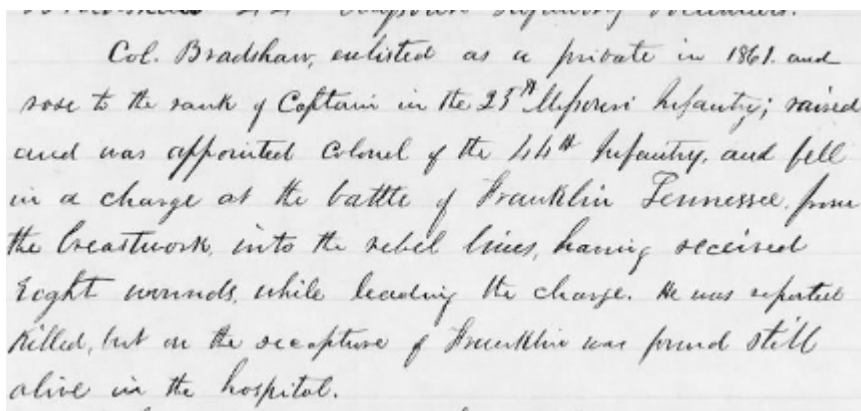 44 Missouri Infantry Volunteers.
Col. Bradshaw, enlisted as a private in 1861. and
rose to the rank of Captain in the 25th Missouri Infantry; raised
and was appointed Colonel of the 44th Infantry, and fell
in a charge at the battle of Franklin Tennessee. from
the breastwork, into the rebel lines, having received
Eight wounds, while leading the charge. He was reported
Killed, but on the recapture of Franklin was found still
alive in the hospital.